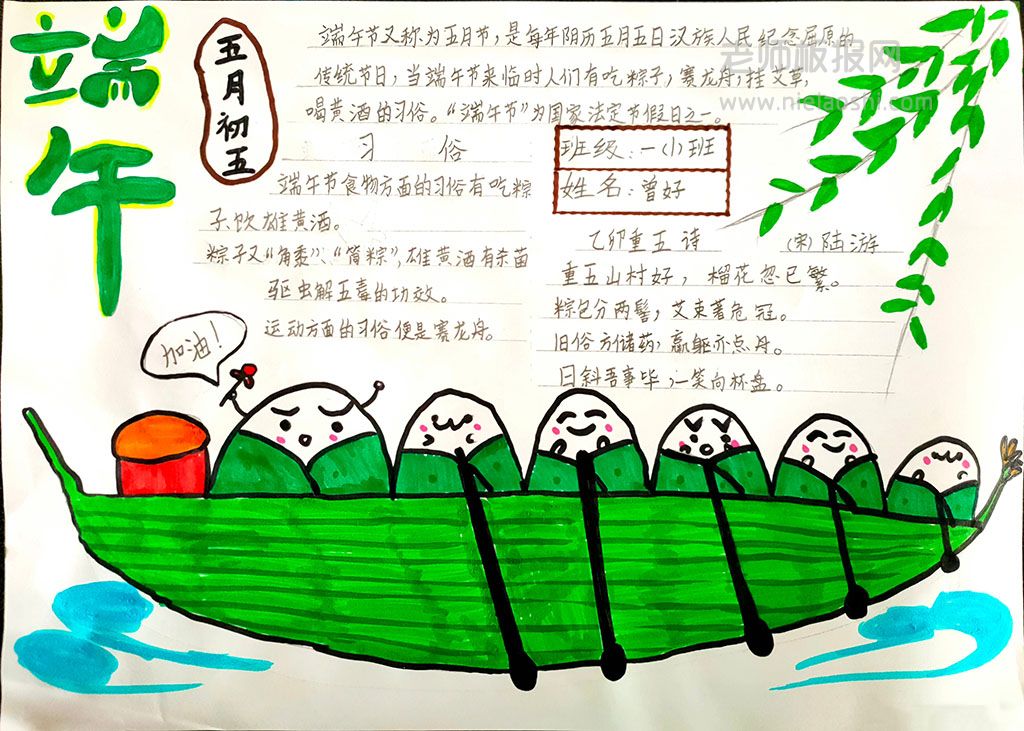 端午
五月初五
端午节又称为五月节,是每年阴历五月五日汉族人民纪念屈原的
传统节日,当端午节来临时人们有吃粽子,赛龙舟,挂艾草,
喝黄酒的习俗。“端午节”为国家法定节假日之一。
老师板报网
www.nielaoshi.com
习俗
端午节食物方面的习俗有吃粽
子、饮雄黄酒。
粽子又“角黍”、“筒粽”,雄黄酒有杀菌
驱虫解五毒的功效。
运动方面的习俗便是赛龙舟。
班级:一(1)班
姓名:曾好
乙卯重五诗 (宋)陆游
重五山村好,榴花忽已繁。
粽包分两髻,艾束著危冠。
旧俗方储药,羸躯亦点丹。
日斜吾事毕,一笑向杯盘。
加油!